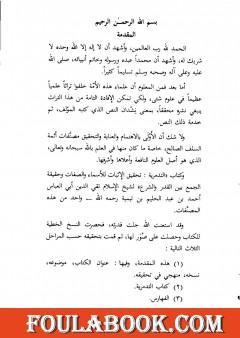 بسم الله الرحمـٰن الرحيم
المقدمة
الحمد لله رب العالمين، وأشهد أن لا إله إلا الله وحده لا
شريك له، وأشهد أن محمداً عبده ورسوله وخاتم أنبيائه، صلى الله
عليه وعلى آله وصحبه وسلم تسليماً كثيراً.
أما بعد فمن المعلوم أن علماء هذه الأمة خلفوا تراثاً علمياً
عظيماً في علوم شتى، ولكي تمكن الإفادة التامة من هذا التراث
ينبغي نشره محققاً، بمعنى نشدان النص الذي كتبه المؤلف، ثم
خدمة ذلك النص.
ولا شك أن الأولى بالاهتمام والعناية والتحقيق مصنّفات أئمة
السلف الصالح، خاصة ما كان منها في العلم بالله سبحانه وتعالى،
الذي هو أصل العلوم النافعة وأجلها وأشرفها.
وكتاب «التدمرية: تحقيق الإثبات للأسماء والصفات وحقيقة
الجمع بين القدر والشرع» لشيخ الإسلام تقي الدين أبي العباس
أحمد بن عبد الحليم بن تيمية رحمه الله — واحد من هذه
المصنّفات.
وقد استعنت الله جلت قدرته، فحصرت النسخ الخطية
للكتاب وحصلت على صُوَر لها، ثم قمت بتحقيقه حسب المراحل
الثلاث التالية:
(١) هذه المقدمة، وفيها: عنوان الكتاب، موضوعه،
نسخه، منهجي في تحقيقه.
(٢) كتاب التدمرية.
(٣) الفهارس.
FOULABOOK.COM